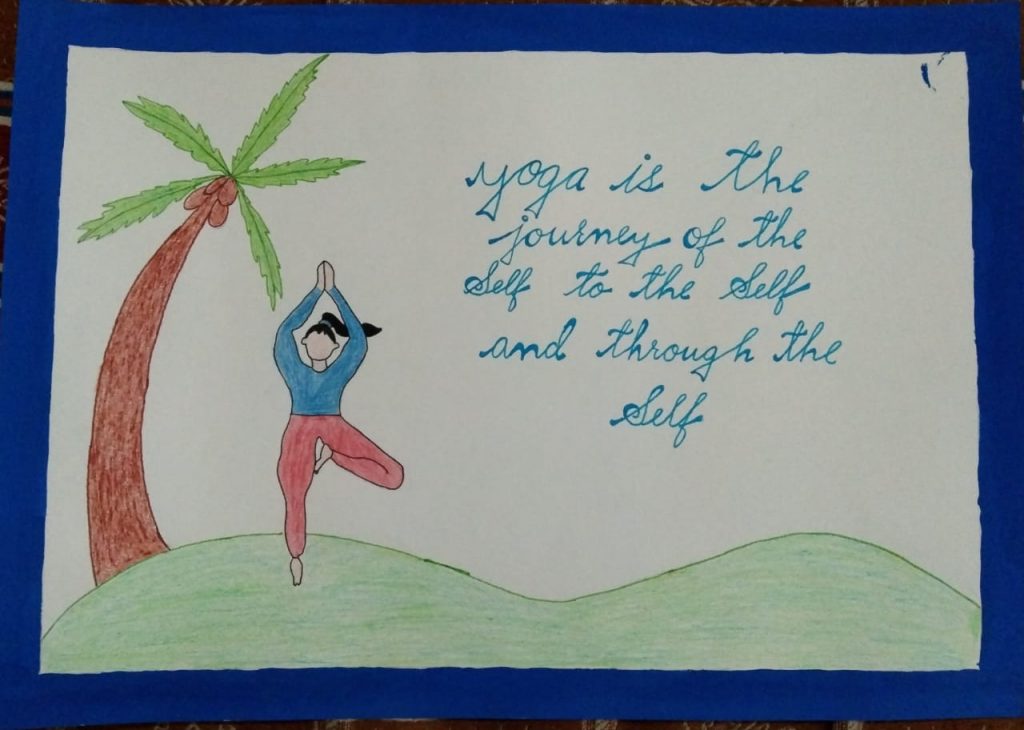 yoga is the
journey of the
Self to the Self
and through the
Self